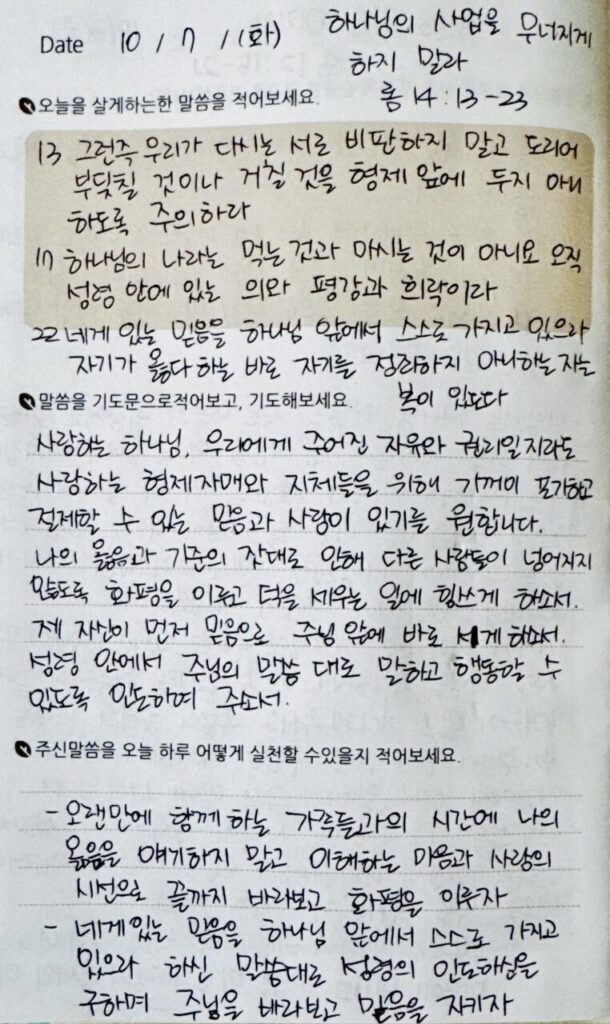 Date 10 / 7 / (화) 하나님의 사업을 무너지게
하지 말라
롬 14 : 13 - 23
오늘을 살게하는한 말씀을 적어보세요.
13 그런즉 우리가 다시는 서로 비판하지 말고 도리어
부딪칠 것이나 거칠 것을 형제 앞에 두지 아니
하도록 주의하라
17 하나님의 나라는 먹는 것과 마시는 것이 아니요 오직
성령 안에 있는 의와 평강과 희락이라
22 네게 있는 믿음을 하나님 앞에서 스스로 가지고 있으라
자기가 옳다 하는 바로 자기를 정죄하지 아니하는 자는
복이 있도다
말씀을 기도문으로적어보고, 기도해보세요.
사랑하는 하나님, 우리에게 주어진 자유와 권리일지라도
사랑하는 형제자매와 지체들을 위해 기꺼이 포기하고
절제할 수 있는 믿음과 사랑이 있기를 원합니다.
나의 옳음과 기준의 잣대로 인해 다른 사람들이 넘어지지
않도록 화평을 이루고 덕을 세우는 일에 힘쓰게 하소서.
제 자신이 먼저 믿음으로 주님 앞에 바로 서게 하소서.
성령 안에서 주님의 말씀 대로 말하고 행동할 수
있도록 인도하여 주소서.
주신말씀을 오늘 하루 어떻게 실천할 수있을지 적어보세요.
- 오랜만에 함께 하는 가족들과의 시간에 나의
옳음을 얘기하지 말고 이해하는 마음과 사랑의
시선으로 끝까지 바라보고 화평을 이루자
- 네게 있는 믿음을 하나님 앞에서 스스로 가지고
있으라 하신 말씀대로 성령의 인도하심을
구하며 주님을 바라보고 믿음을 지키자